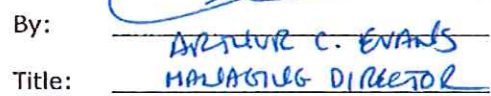 By: ARTHUR C. EVANS
Title: MANAGING DIRECTOR